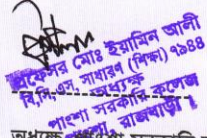 প্রফেসর মোঃ ইয়ামিন আলী
বি,সি,এস, সাধারণ (শিক্ষা) ৭৯৪৪
অধ্যক্ষ
পাংশা সরকারি কলেজ
রাজবাড়ী
অধ্যক্ষ